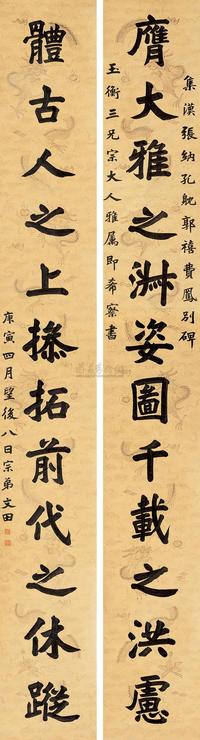 集漢張納孔鮑郭禧費鳳別碑
膺大雅之淋姿圖千載之洪慮
玉衡三兄宗大人雅屬即希察書
體古人之上操拓前代之休蹤
庚寅四月望後八日宗弟文田